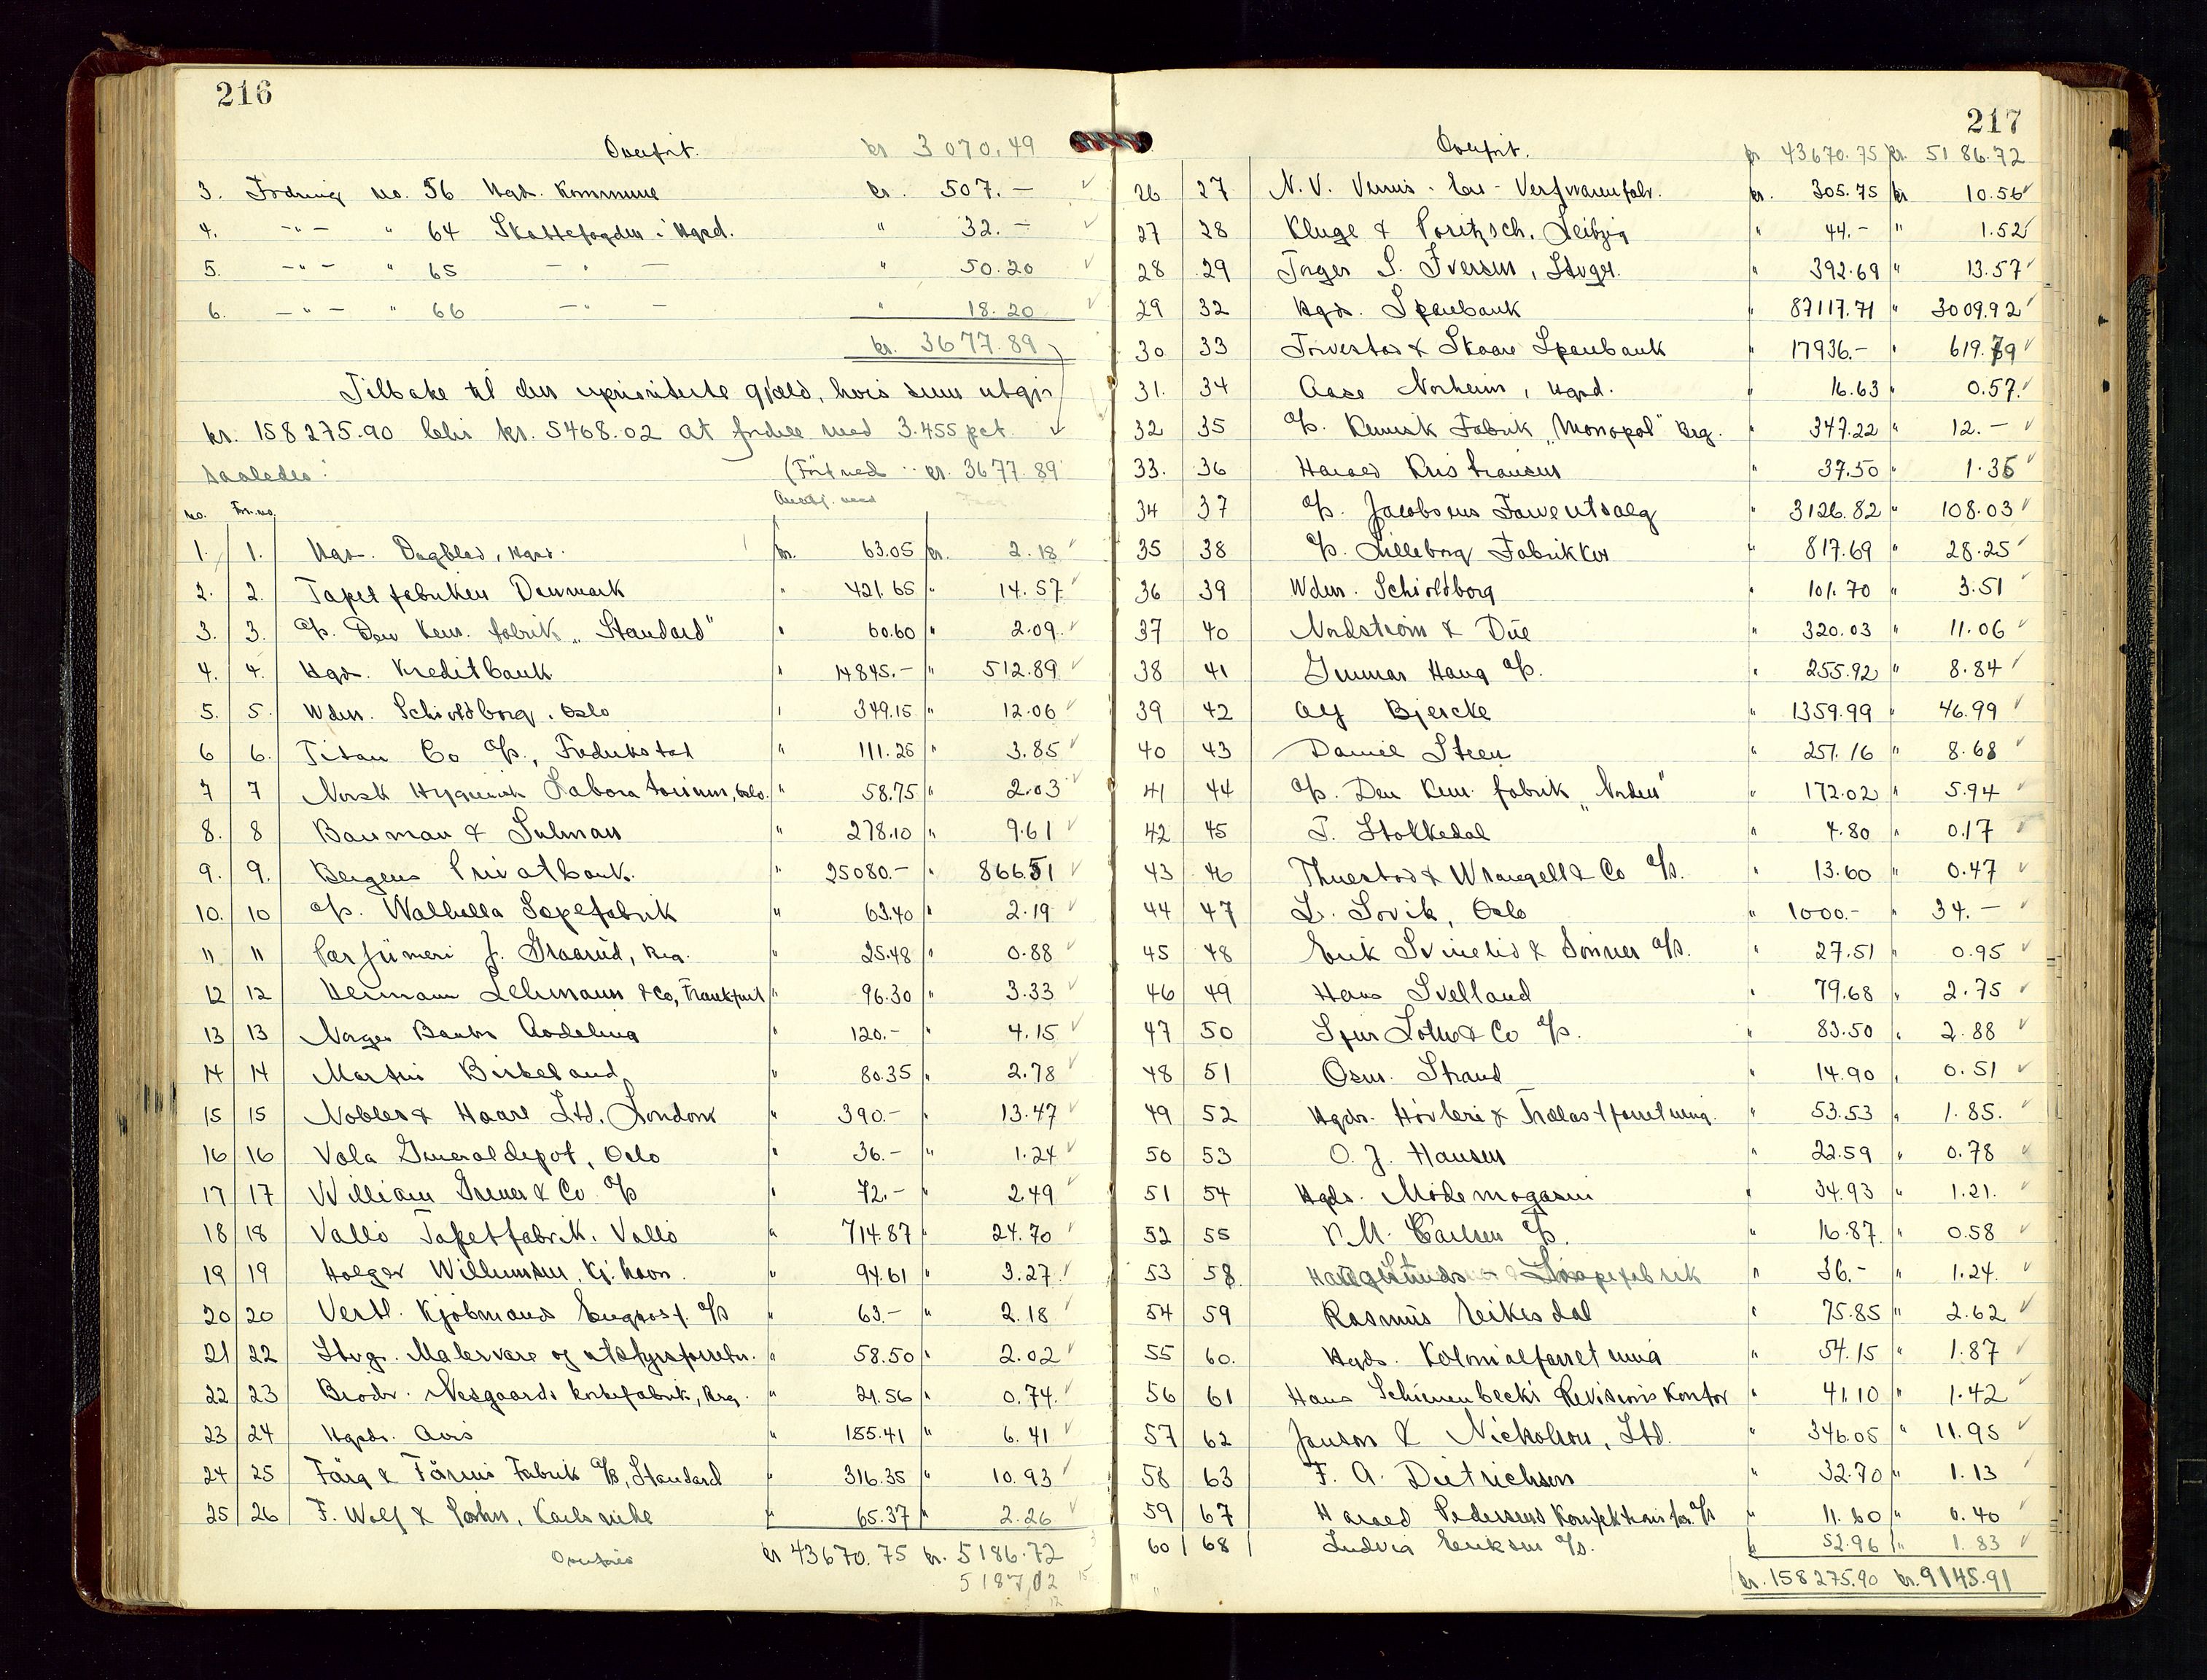 216
Overført. kr 3070.49
3. Fordring no. 56 Hgds. Kommune kr. 507.-
4. -"- " 64 Skattefogden i Hgsd. " 32.-
5. -"- " 65 -"- " 50.20
6. -"- " 66 -"- " 18.20
kr. 3677.89
Tilbake til den uprioriterte gjæld, hvis sum utgjør
kr. 158275.90 blir kr. 5468.02 at fordele med 3.455 pct.
saaledes: (Ført ned kr. 3677.89
No. For. no. Anmeldt med
1. 1. Hgs. Dagblad, Hgsd. kr. 63.05 kr. 2.18
2. 2. Tapetfabriken Danmark " 421.65 " 14.57
3. 3. A/S. Den Kem. fabrik "Standard" " 60.60 " 2.09
4. 4. Hgs. Kreditbank " 14845.- " 512.89
5. 5. Wdm. Schioldborg. Oslo " 349.15 " 12.06
6 6. Titan Co A/S., Fredrikstad " 111.25 " 3.85
7 7 Norsk Hygienisk Laboratorium, Oslo. " 58.75 " 2.03
8. 8 Bauman & Sulman " 278.10 " 9.61
9. 9. Bergens Privatbank. " 25080.- " 866.51
10. 10 A/S. Walhalla Sæpefabrik " 63.40 " 2.19
11 11 Parfümeri J. Graarud, Brg. " 25.48 " 0.88
12 12 Hermann Lehmann & Co, Frankfurt " 96.30 " 3.33
13 13 Norges Banks Avdeling " 120.- " 4.15
14 14 Martin Birkeland " 80.35 " 2.78
15 15 Nobles & Hoare Ltd. London " 390.- " 13.47
16 16 Vola Generaldepot, Oslo " 36.- " 1.24
17 17 William Greuer & Co. A/S " 72.- " 2.49
18 18 Vallö Tapetfabrik. Vallö " 714.87 " 24.70
19 19 Holger Willumsen, Kj.havn. " 94.61 " 3.27
20 20 Vertl. Kjøbmands Engrosf. A/S " 63.- " 2.18
21 22 Stvgr. Malervare og utstyrsforretn. " 58.50 " 2.02
22 23 Brødr. Nesgaards korkefabrik, Brg. " 21.56 " 0.74
23 24 Hgsds. Avis " 185.41 " 6.41
24 25 Färg & Färnis Fabrik A/B, Standard " 316.35 " 10.93
25 26 F. Wolf & Sohn, Karlsruhe " 65.37 " 2.26
Overføres kr 43670.75 kr. 5186.72
5187,02
217
Overført. kr 43670.75 kr. 5186.72
26 27 N.V. Vernis- en- Verfwarenfabr. kr. 305.75 kr 10.56
27 28 Kluge & Poritzsch. Leibzig " 44.- " 1.52
28 29 Inger S. Iversen, Stvgr. " 392.69 " 13.57
29 32 Hgs. Sparebank " 87117.71 " 3009.92
30 33 Torvestad & Skaare Sparebank " 17936.- " 619.79
31. 34 Aase Norheim, Hgsd. " 16.63 " 0.57
32 35 A/S. Kemisk Fabrik "Monopol" Brg. " 347.22 " 12.-
33. 36 Harald Kristiansen " 37.50 " 1.36
34 37 A/S. Jacobsens Farveutsalg " 3126.82 " 108.03
35 38 A/S. Lilleborg Fabrikker " 817.69 " 28.25
36 39 Wdm. Schioldborg " 101.70 " 3.51
37 40 Nordstrøm & Due " 320.03 " 11.06
38 41 Gunnar Haug A/S. " 255.92 " 8.84
39 42 Alf Bjercke " 1359.99 " 46.99
40 43 Daniel Steen " 251.16 " 8.68
41 44 A/S. Den Kem. fabrik "Norden" " 172.02 " 5.94
42 45 T. Stokkedal " 4.80 " 0.17
43 46 Thuestad & Wrangell & Co A/S. " 13.60 " 0.47
44 47 L. Sovik, Oslo " 1000.- " 34.-
45 48 Erik Svinelid & Sønner A/S. " 27.51 " 0.95
46 49 Hans Svelland " 79.68 " 2.75
47 50 Lothe & Co A/S. " 83.50 " 2.88
48 51 Osm. Strand " 14.90 " 0.51
49 52 Hgds. Høvleri & Trælastforretning. " 53.53 " 1.85.
50 53 O. J. Hansen " 22.59 " 0.78
51 54 Hgds. Motemagasin " 34.93 " 1.21.
52 55 P. M. Carlsen A/S. " 16.87. " 0.58
53 58. Haugesunds Sæpefabrik " 36.- " 1.24.
54 59 Rasmus Eikesdal " 75.85 " 2.62
55 60. Hgds. Kolonialforretning " 54.15 " 1.87
56 61 Hans Schienenbecks Revisionskontor " 41.10 " 1.42
57 62 Janson & Nickolson, Ltd. " 346.05 " 11.95
58 63 F. A. Dietrichson " 32.70 " 1.13
59 67 Harald Pedersens Konfektions for. A/S " 11.60 " 0.40
60 68 Ludvig Eriksen A/S. " 52.96 " 1.83
kr. 158275.90 kr. 9145.91